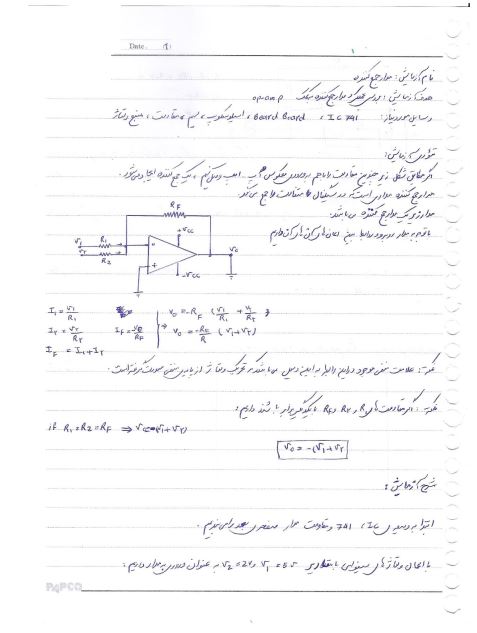 Date. 1)
نام آزمایش: مدار جمع کننده
هدف آزمایش: بررسی عملکرد مدار جمع کننده به کمک op-amp
وسایل مورد نیاز: IC 741 ، Board Board ، اسیلوسکوپ، سیم، مقاومت، منبع ولتاژ
تئوری آزمایش:
اگر مطابق شکل زیر چندین مقاومت را با هم به ورودی معکوس آپ امپ وصل کنیم، یک جمع کننده ایجاد می شود.
مدار جمع کننده مداری است که دو سیگنال یا را با هم جمع می کند.
مدار زیر یک مدار جمع کننده می باشد.
با توجه به مدار روابط بین المان های آن داریم
RF
+VCC
V1 R1
V2 R2
V0
-VCC
I1 = V1/R1
I2 = V2/R2 IF = V0/RF ⇒ V0 = -RF (V1/R1 + V2/R2)
V0 = -RF/R (V1+V2)
IF = I1 + I2
نکته: علامت منفی موجود در این رابطه به این دلیل می باشد که تحریک ولتاژ از پایه ی منفی صورت گرفته است.
نکته: اگر مقاومت های R1 و R2 و RF با یکدیگر برابر باشند داریم:
if R1=R2=RF ⇒ V0=-(V1+V2)
V0 = -(V1+V2
شرح آزمایش:
ابتدا به وسیله ی IC 741 و مقاومت مدار صفحه ی بعد را می بندیم.
با اعمال ولتاژهای سینوسی با مقادیر V1=5V و V2=2V به عنوان ورودی به مدار داریم:
PAPCO